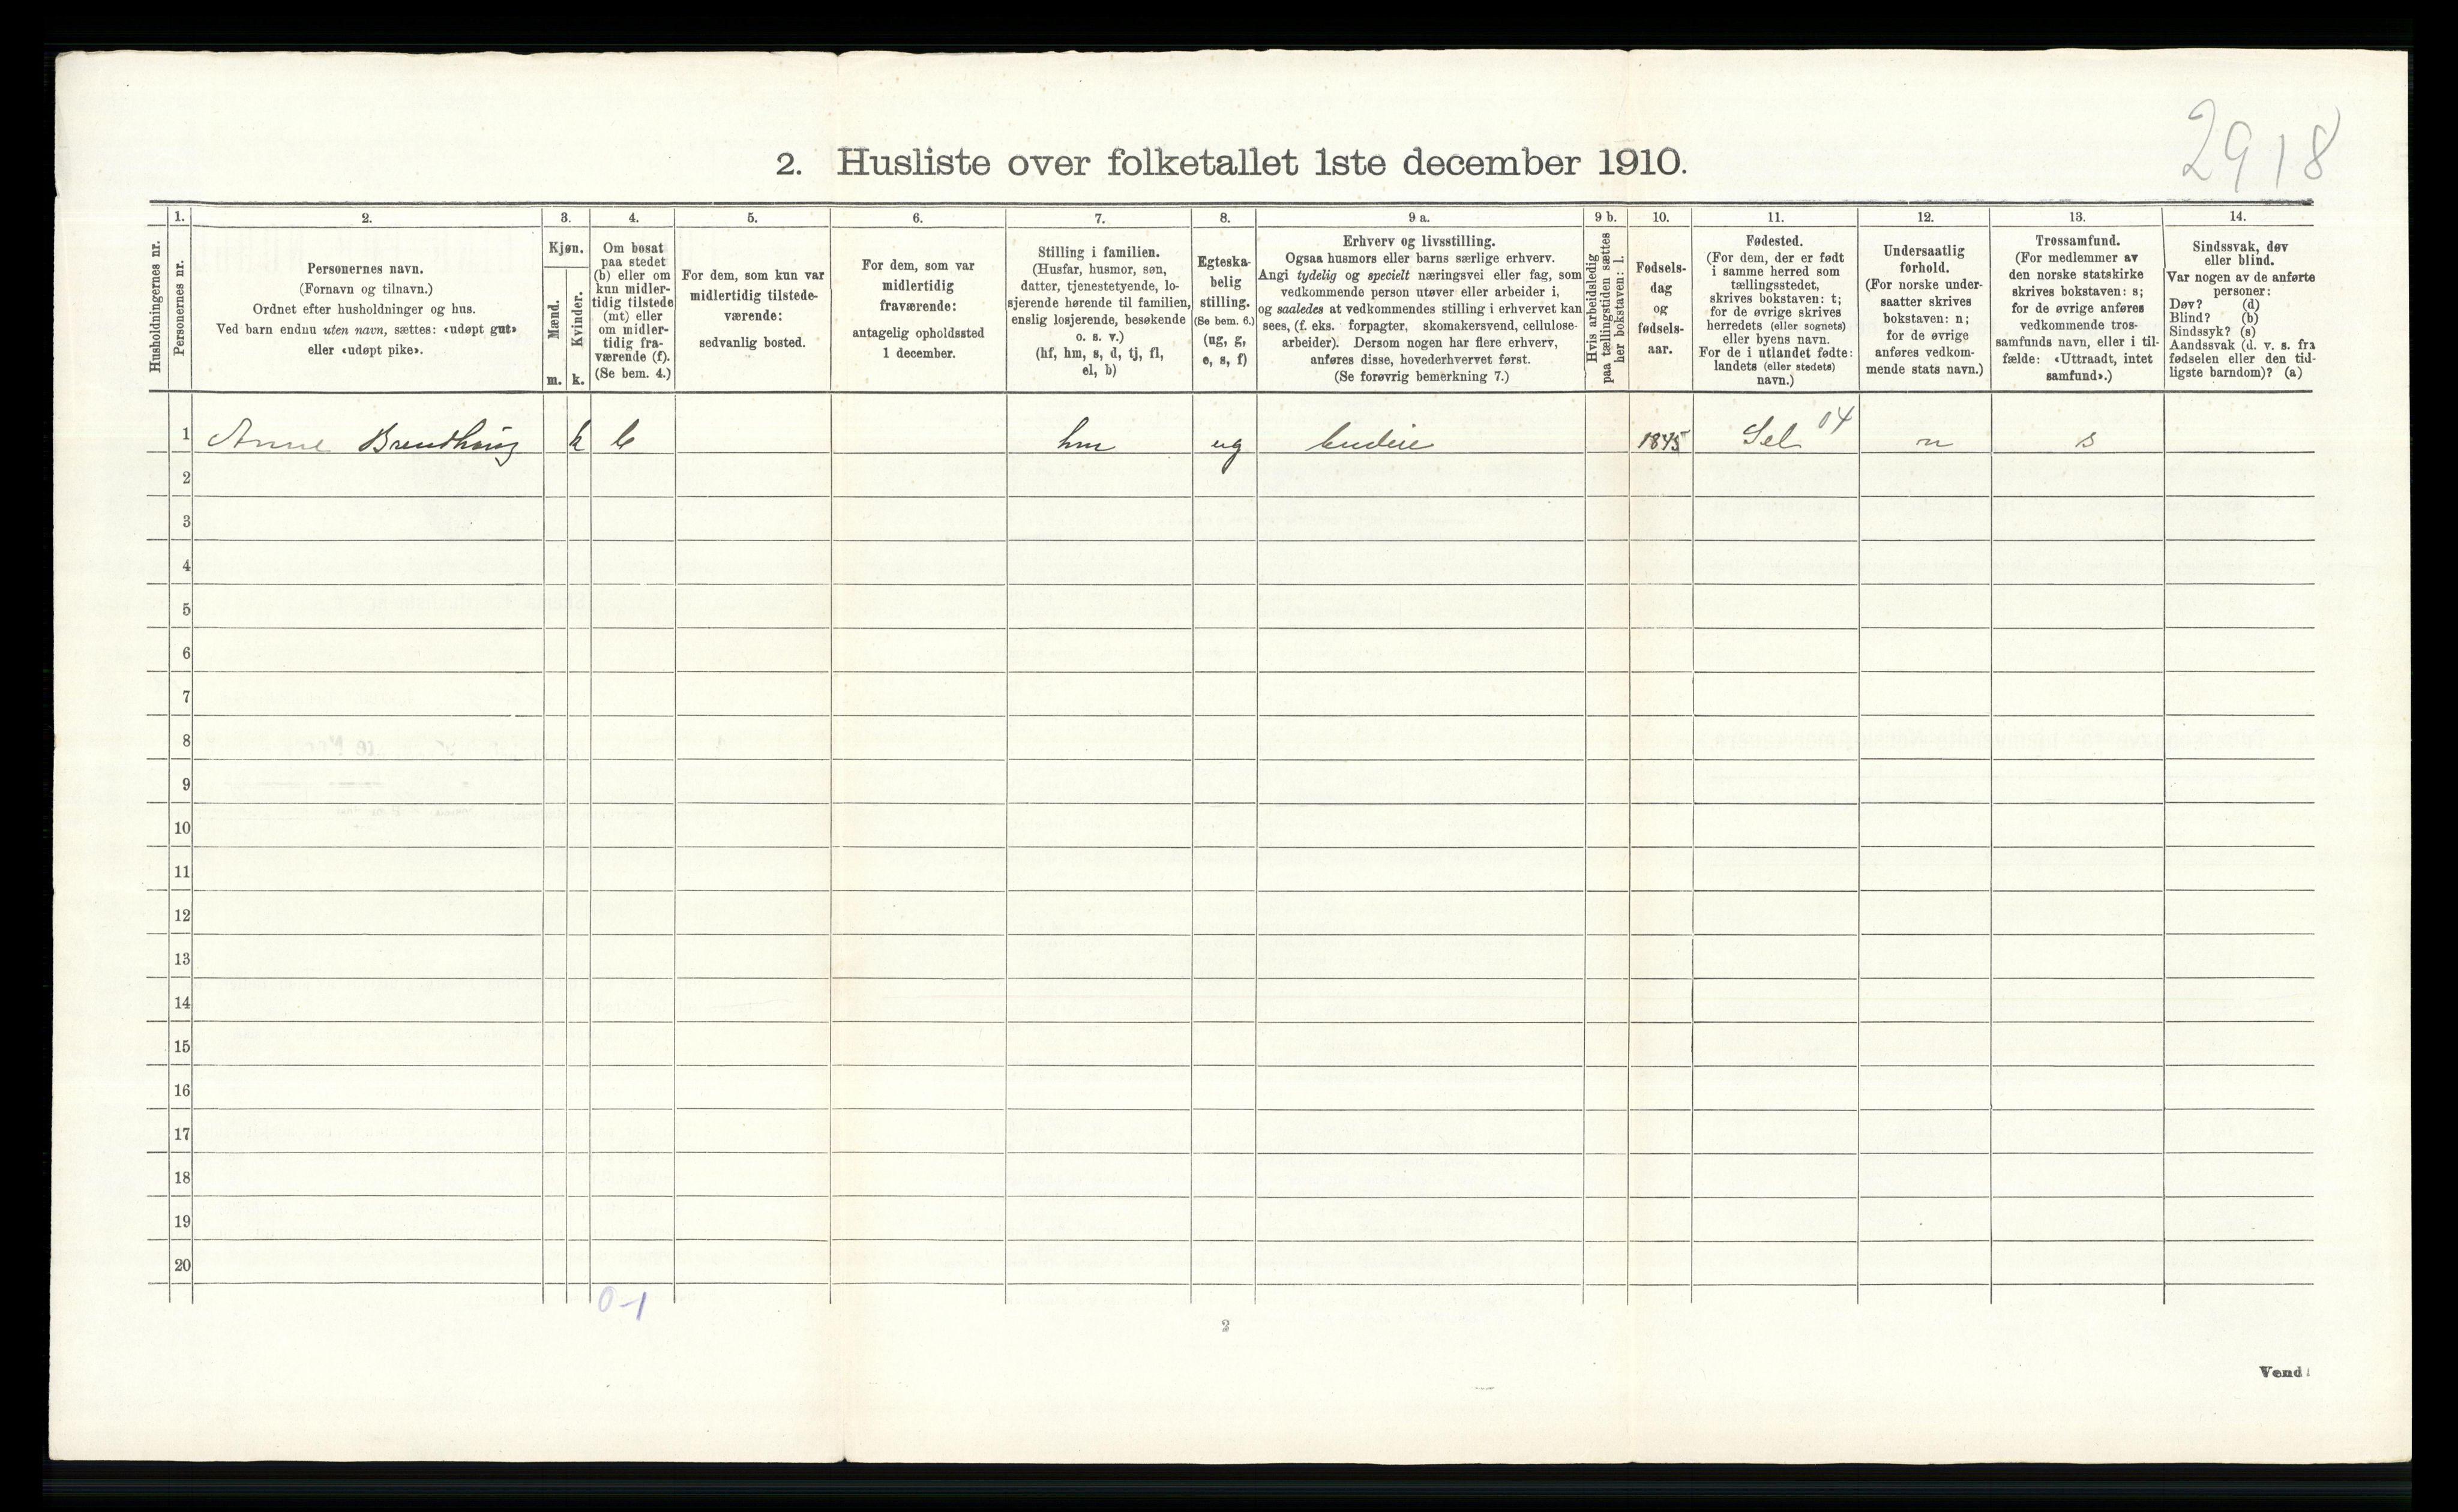 2918
2. Husliste over folketallet 1ste december 1910.
Husholdningernes nr.
1.
Personernes nr.
2.
Personernes navn.
(Fornavn og tilnavn.)
Ordnet efter husholdninger og hus.
Ved barn endnu uten navn, sættes: «udøpt gut»
eller «udøpt pike».
3.
Kjøn.
Mænd.
Kvinder.
m. k.
4.
Om bosat
paa stedet
(b) eller om
kun midler-
tidig tilstede
(mt) eller
om midler-
tidig fra-
værende (f).
(Se bem. 4.)
5.
For dem, som kun var
midlertidig tilstede-
værende:
sedvanlig bosted.
6.
For dem, som var
midlertidig
fraværende:
antagelig opholdssted
1 december.
7.
Stilling i familien.
(Husfar, husmor, søn,
datter, tjenestetyende, lo-
sjerende hørende til familien,
enslig losjerende, besøkende
o. s. v.)
(hf, hm, s, d, tj, fl,
el, b)
8.
Egteska-
belig
stilling.
(Se bem. 6.)
(ug, g,
e, s, f)
9 a.
Erhverv og livsstilling.
Ogsaa husmors eller barns særlige erhverv.
Angi tydelig og specielt næringsvei eller fag, som
vedkommende person utøver eller arbeider i,
og saaledes at vedkommendes stilling i erhvervet kan
sees, (f. eks. forpagter, skomakersvend, cellulose-
arbeider). Dersom nogen har flere erhverv,
anføres disse, hovederhvervet først.
(Se forøvrig bemerkning 7.)
9 b.
Hvis arbeidsledig
paa tællingstiden sættes
her bokstaven: l.
10.
Fødsels-
dag
og
fødsels-
aar.
11.
Fødested.
(For dem, der er født
i samme herred som
tællingsstedet,
skrives bokstaven: t;
for de øvrige skrives
herredets (eller sognets)
eller byens navn.
For de i utlandet fødte:
landets (eller stedets)
navn.)
12.
Undersaatlig
forhold.
(For norske under-
saatter skrives
bokstaven: n;
for de øvrige
anføres vedkom-
mende stats navn.)
13.
Trossamfund.
(For medlemmer av
den norske statskirke
skrives bokstaven: s;
for de øvrige anføres
vedkommende tros-
samfunds navn, eller i til-
fælde: «Uttraadt, intet
samfund».)
14.
Sindssvak, døv
eller blind.
Var nogen av de anførte
personer:
Døv? (d)
Blind? (b)
Sindssyk? (s)
Aandssvak (d. v. s. fra
fødselen eller den tid-
ligste barndom)? (a)
1 Anne Brendhaug k b hm ug 1845 Sel 04 n s
2
3
4
5
6
7
8
9
10
11
12
13
14
15
16
17
18
19
20
0-1
2
Vend